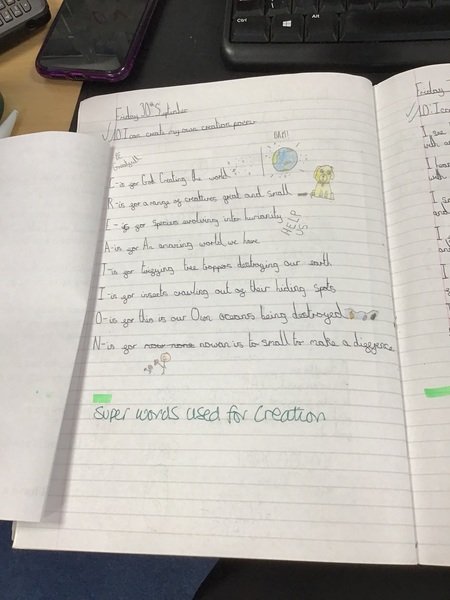 Friday 30th September
LO: I can create my own creation poem
RE
C-is for God Creating the world
BAM!
R-is for a range of creatures great and small
E-is for species evolving into humanity
HELP US
A-is for An amazing world we have
T-is for tree toppers destroying our earth
I-is for insects crawling out of their hiding spots
O-is for this is our Own oceans being destroyed
N-is for nowan is to small to make a difference
Super words used for Creation
Friday
LO: I ca
Alt